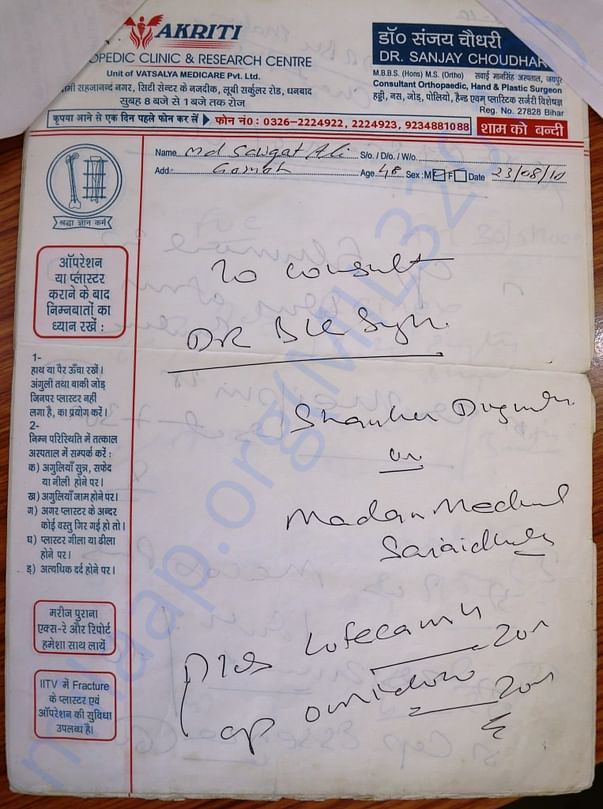 AKRITI
OPEDIC CLINIC & RESEARCH CENTRE
Unit of VATSALYA MEDICARE Pvt. Ltd.
मी सहजानन्द नगर, सिटी सेन्टर के नजदीक, लूबी सर्कुलर रोड, धनबाद
सुबह 8 बजे से 1 बजे तक रोज
डॉ० संजय चौधरी
DR. SANJAY CHOUDHAR
M.B.B.S. (Hons) M.S. (Ortho) सवाई मानसिंह अस्पताल, जयपुर
Consultant Orthopaedic, Hand & Plastic Surgeon
हड्डी, नस, जोड़, पोलियो, हैन्ड एवम् प्लास्टिक सर्जरी विशेषज्ञ
Reg. No. 27628 Bihar
कृपया आने से एक दिन पहले फोन कर लें फोन नं०: 0326-2224922, 2224923, 9234881088 शाम को बन्दी
Name Md Ali S/o. / D/o. / W/o.
Add Age 48 Sex : M F Date 23/08/10
श्रद्धा ज्ञान कर्म
ऑपरेशन
या प्लास्टर
कराने के बाद
निम्नबातों का
ध्यान रखें :
1-
हाथ या पैर ऊँचा रखें।
अंगुली तथा बाकी जोड़
जिनपर प्लास्टर नहीं
लगा है, का प्रयोग करें।
2-
निम्न परिस्थिति में तत्काल
अस्पताल में सम्पर्क करें :
क) अंगुलियाँ सुन्न, सफेद
या नीली होने पर।
ख) अंगुलियाँ नाम होने पर।
ग) अगर प्लास्टर के अन्दर
कोई वस्तु गिर गई हो तो।
घ) प्लास्टर गीला या ढीला
होने पर।
ङ) अत्यधिक दर्द होने पर।
मरीज पुराना
एक्स-रे और रिपोर्ट
हमेशा साथ लायें
IITV में Fracture
के प्लास्टर एवं
ऑपरेशन की सुविधा
उपलब्ध है।
To consult
DR
Shanker
or
Madan Medical
Saraidhela
cap
milaap.org